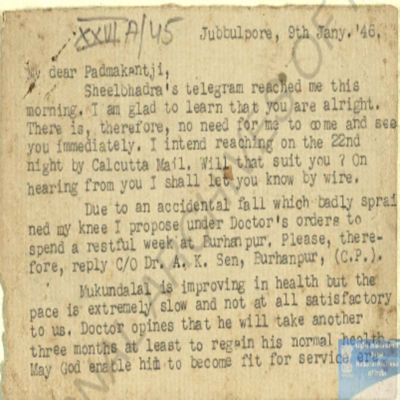 XXVI A/45
Jubbulpore, 9th Jany. '46.
My dear Padmakantji,
Sheelbhadra's telegram reached me this
morning. I am glad to learn that you are alright.
There is, therefore, no need for me to come and see
you immediately. I intend reaching on the 22nd
night by Calcutta Mail. Will that suit you ? On
hearing from you I shall let you know by wire.
Due to an accidental fall which badly sprai
ned my knee I propose under Doctor's orders to
spend a restful week at Burhanpur. Please, there-
fore, reply C/O Dr. A. K. Sen, Burhanpur, (C.P.).
Mukundalal is improving in health but the
pace is extremely slow and not at all satisfactory
to us. Doctor opines that he will take another
three months at least to regain his normal health.
May God enable him to become fit for service